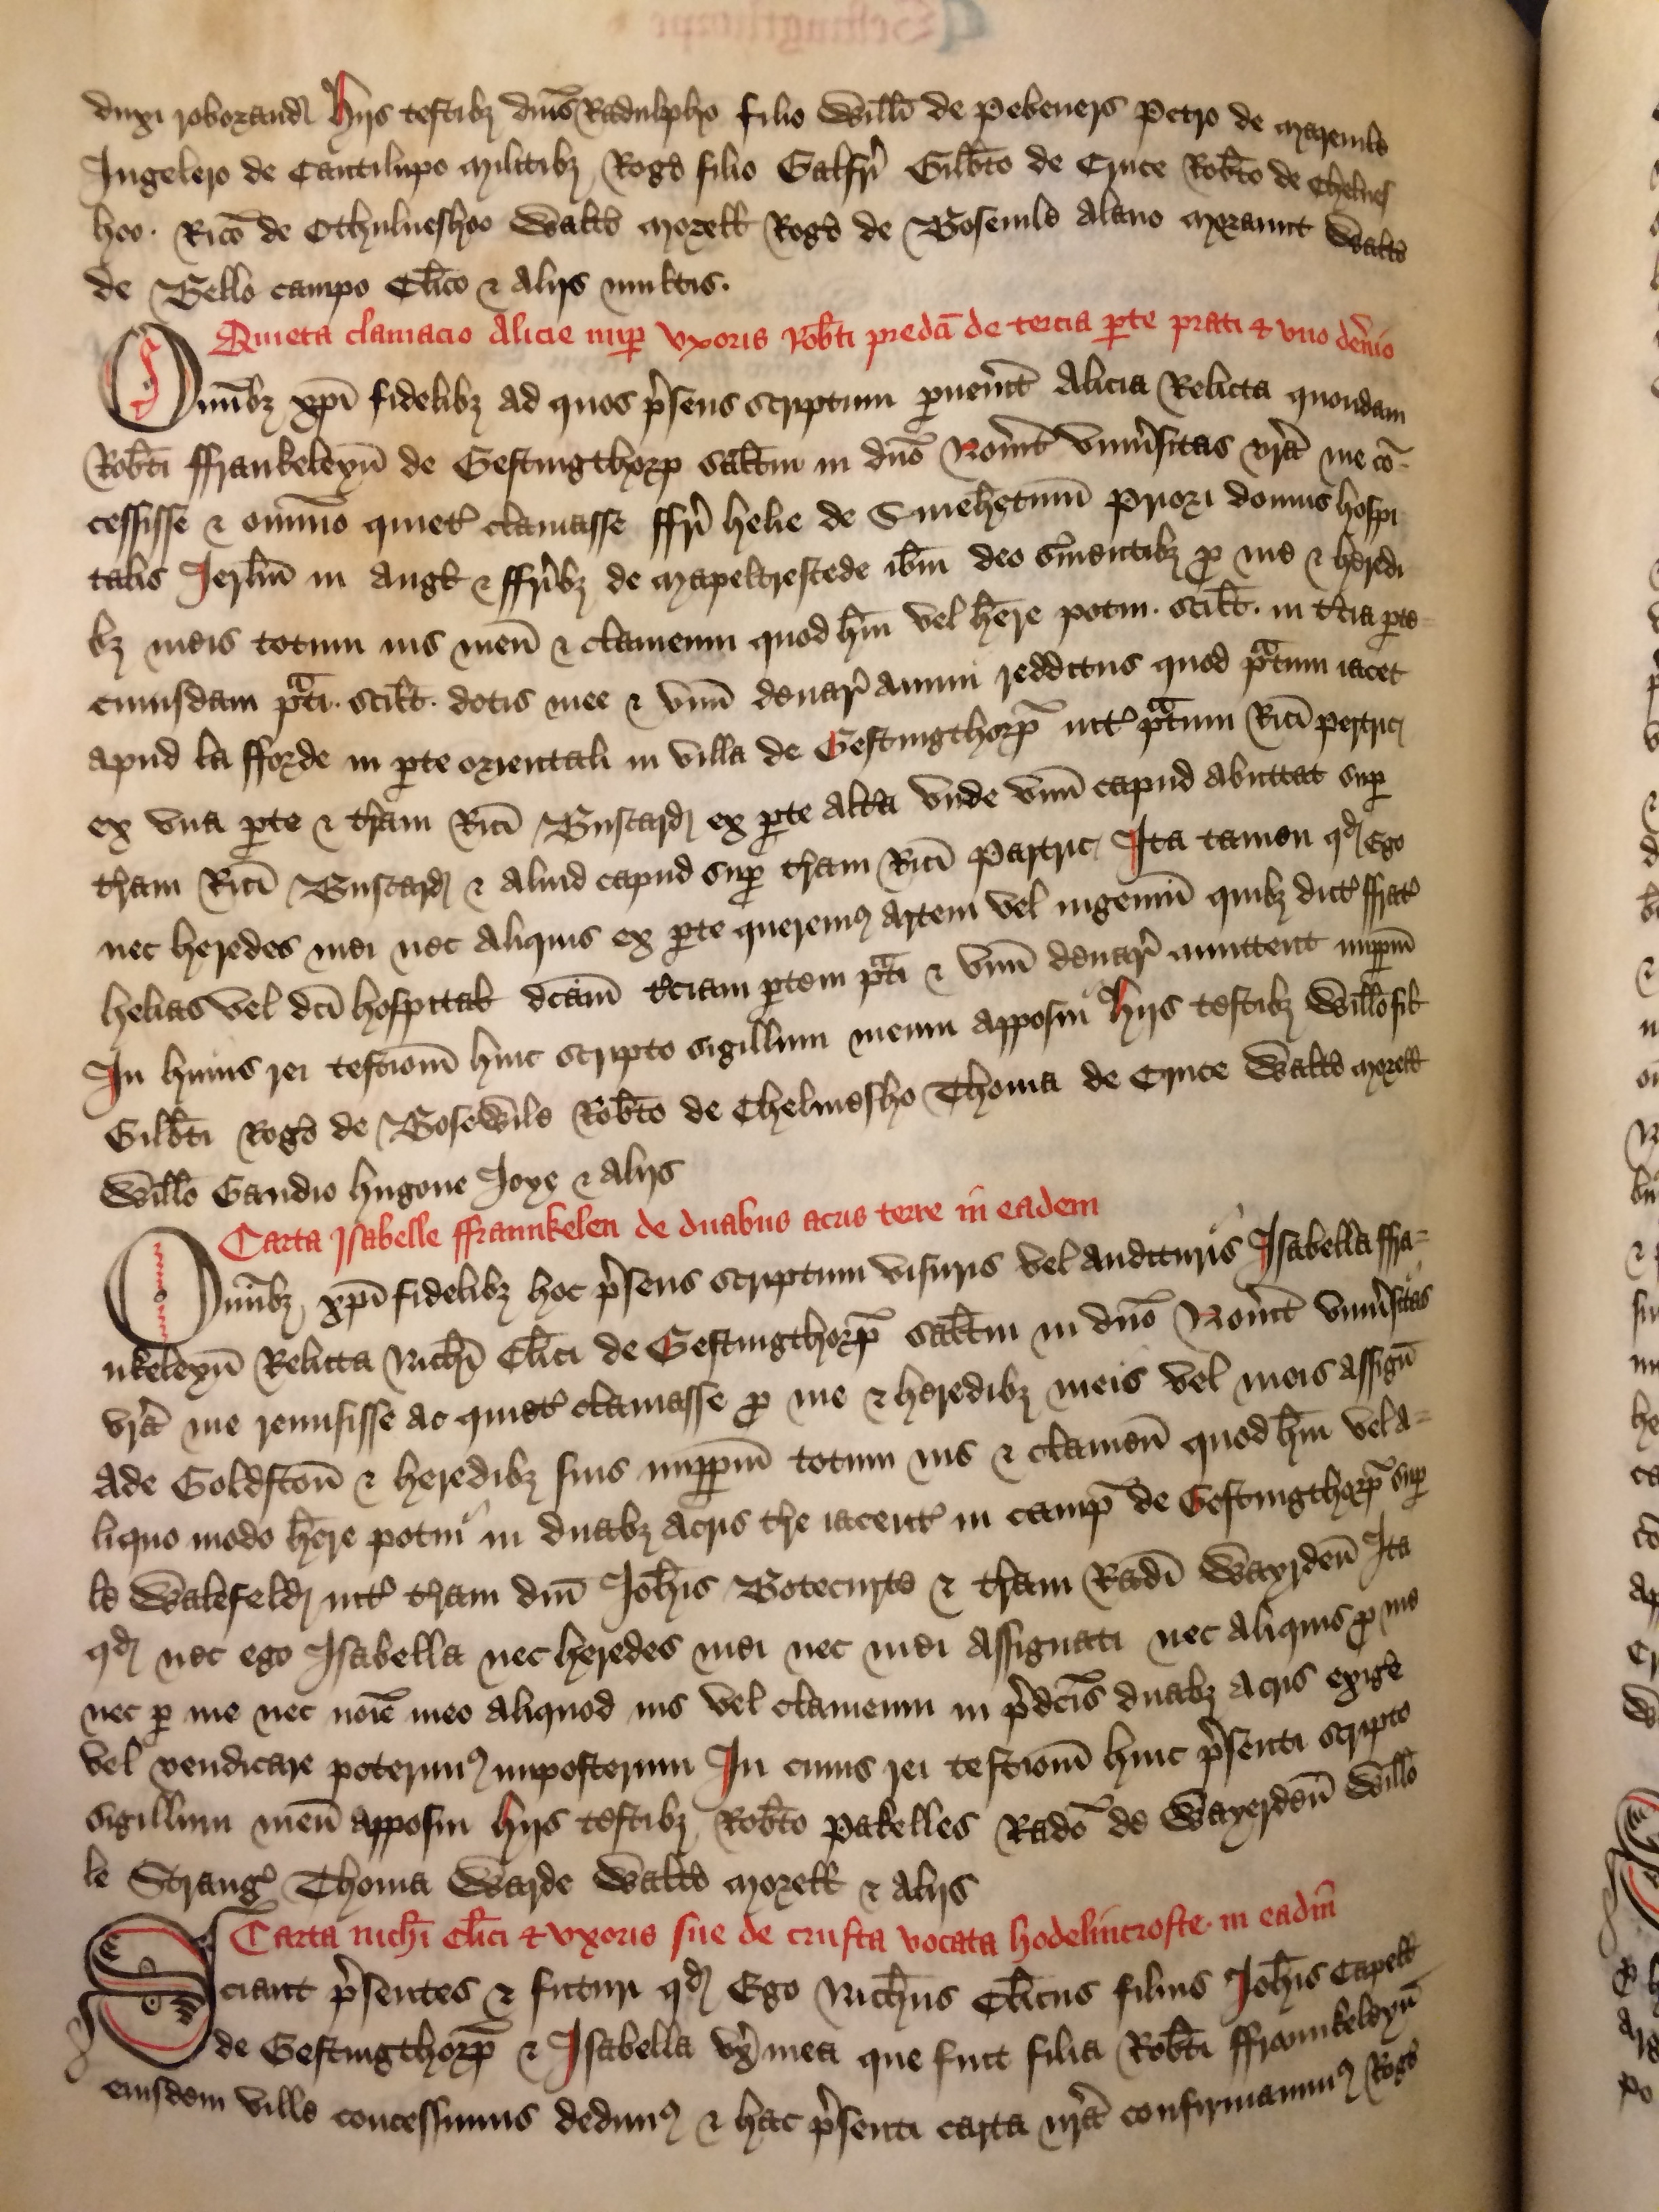 duxi roborand hijs testibȝ dn̄o Radulpho filio Will̄i de Pebeners Petro de Mareuile
Ingelero de Cantilupo militibȝ Rog̃o filio Galfr̃i Gilb̄to de Cruce Rob̄to de Chelues
hoo. Ric̄o de Othulueshoo Walt̃o Morell Rog̃o de Boseuile Alano Moraunt Walt̃o
de Bello campo Cl̄ico ⁊ alijs multis.
Quieta clamacio Alicie nuꝑ vxoris Rob̄ti predc̄i de tercia ꝑte prati ⁊ vno den̄io
Omībȝ xp̄i fidelibȝ ad quos p̃sens scriptum ꝑuen̄it Alicia Relicta quondam
Rob̄ti ffrankeleyn̄ de Gestingthorp salt̄m in dn̄o Noũit vniũsitas vr̄a me cō-
cessisse ⁊ om̄ino quiet̃ clamasse ffr̃i Helie de Smehetun̄ Priori domus hospi
talis Jerlm̄ in Angl̄ ⁊ ffr̃ibȝ de Mapeltrestede ib̄m deo s̃uientibȝ ꝓ me ⁊ heredi
bȝ meis totum ius meū ⁊ clameum quod h̄ui vel h̄ere potui. scil̄t. in t̃cia ꝑte
cuiusdam pᵃti. scil̄t. dotis mee ⁊ vnū denar̃ annui redditus quod pᵃtum iacet
apud la fforde in ꝑte orientali in villa de Gestingthorp̃ int̃ pᵃtum Ric̄i Pertric
ex vna ꝑte ⁊ t̃ram Ric̄i Bustard ex ꝑte alt̃a vnde vnū capud abuttat suꝑ
t̃ram Ric̄i Bustard ⁊ aliud capud suꝑ t̃ram Ric̄i Partric Ita tamen qd Ego
nec heredes mei nec aliquis ex ꝑte queremꝰ artem vel ingeniū quibȝ dict̃ ffrat̃
helias vel dc̄i hospital̄ dc̄am t̃ciam ꝑtem pᵃti ⁊ vnū denar̃ amittent inꝑpm̄
In huius rei testiom̄ huic scripto sigillum meum apposui hijs testibȝ Will̄o fil̄
Gilb̄ti Rog̃o de Bosewile Rob̄to de Chelmesho Thoma de Cruce Walt̃o Morell
Will̄o Gaudio Hugone Joye ⁊ alijs
Carta Isabelle ffraunkelen de duabus acris terre in eadem
Omībȝ xp̄i fidelibȝ hoc p̃sens scriptum visuris vel audituris Isabella ffra-
nkeleyn̄ Relicta Nich̄i Cl̄ici de Gestingthorp̃ salt̄m in dn̄o Noũit vniũsitas
vr̄a me remisisse ac quiet̃ clamasse ꝓ me ⁊ heredibȝ meis vel meis assign̄
Ade Goldston̄ ⁊ heredibȝ suis inꝑpm̄ totum ius ⁊ clameū quod h̄ui vel a-
liquo modo h̄ere potui in duabȝ acris t̃re iacent̃ in camp̃ de Gestingthorp̃ suꝑ
le Walefeld int̃ t̃ram dn̄i Joh̄is Botecurte ⁊ t̃ram Rad̄i Wayrden̄ Ita
qd nec ego Isabella nec heredes mei nec mei assignati nec aliquis ꝓ me
nec ꝑ me nec noīe meo aliquod ius vel clameum in p̃dc̄is duabȝ acris exig̃e
vel vendicare poterimꝰ imposterum In cuius rei testiom̄ huic p̃senti scripto
sigillum meū apposui hijs testibȝ Rob̄to Pakelles Rad̄o de Wayerden̄ Will̄o
le Strang̃ Thoma Warde Walt̃o Morell ⁊ alijs
Carta nich̄i Cl̄ici ⁊ vxoris sue de crufta vocata hodelincrofte. in eadm̄
Sciant p̃sentes ⁊ futuri qd Ego Nich̄us Cl̄icus filius Joh̄is Capell
de Gestingthorp̃ ⁊ Isabella vx̃ mea que fuit filia Rob̄ti ffraunkeleyn̄
eiusdem ville concessimus dedimꝰ ⁊ hac p̃senti carta nr̄a confirmauimꝰ Rog̃o